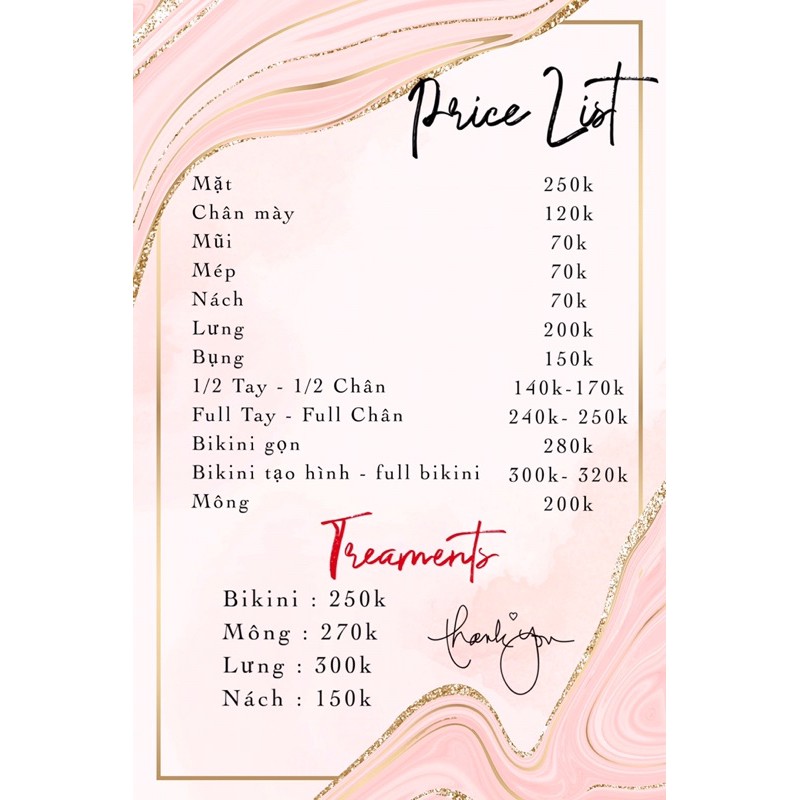 Price List
Mặt 250k
Chân mày 120k
Mũi 70k
Mép 70k
Nách 70k
Lưng 200k
Bụng 150k
1/2 Tay - 1/2 Chân 140k-170k
Full Tay - Full Chân 240k- 250k
Bikini gọn 280k
Bikini tạo hình - full bikini 300k- 320k
Mông 200k
Treaments
Bikini : 250k
Mông : 270k
Lưng : 300k
Nách : 150k
thank you